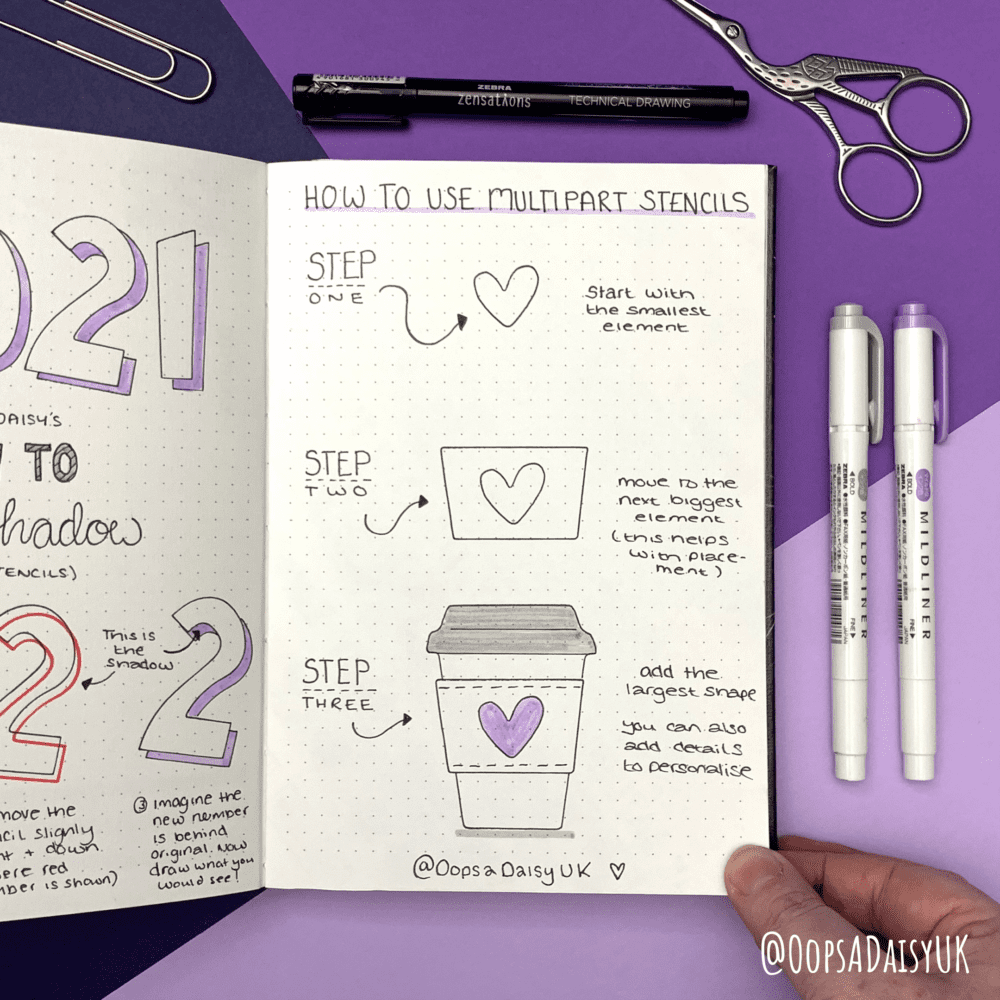 ZEBRA
zensations TECHNICAL DRAWING
021
DAISY'S
TO
hadow
TENCILS)
2
This is
the
shadow
2
move the
cil slighly
t + down
ere red
mber is shown)
③ Imagine the
new number
is behind
original. Now
draw what you
would see!
HOW TO USE MULTIPART STENCILS
STEP
ONE
Start with
the smallest
element
STEP
TWO
move to the
next biggest
element
(this helps
with place-
ment)
STEP
THREE
add the
largest shape
you can also
add details
to personalise
@OopsaDaisyUK ♡
◀ BOLD
ZEBRA
MILDLINER
FINE ▶
JAPAN
◀ BOLD
ZEBRA
MILDLINER
FINE ▶
JAPAN
@OopsADaisyUK